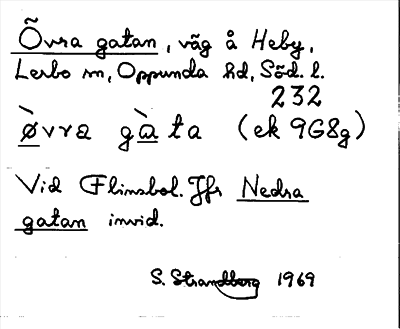 Õvra gatan, väg å Heby,
Lerbo sn, Oppunda hd, Söd. l.
232
ø̀vra gàta (ek 9G8g)
Vid Flinsbol. Jfr Nedra
gatan invid.
S. Strandberg 1969